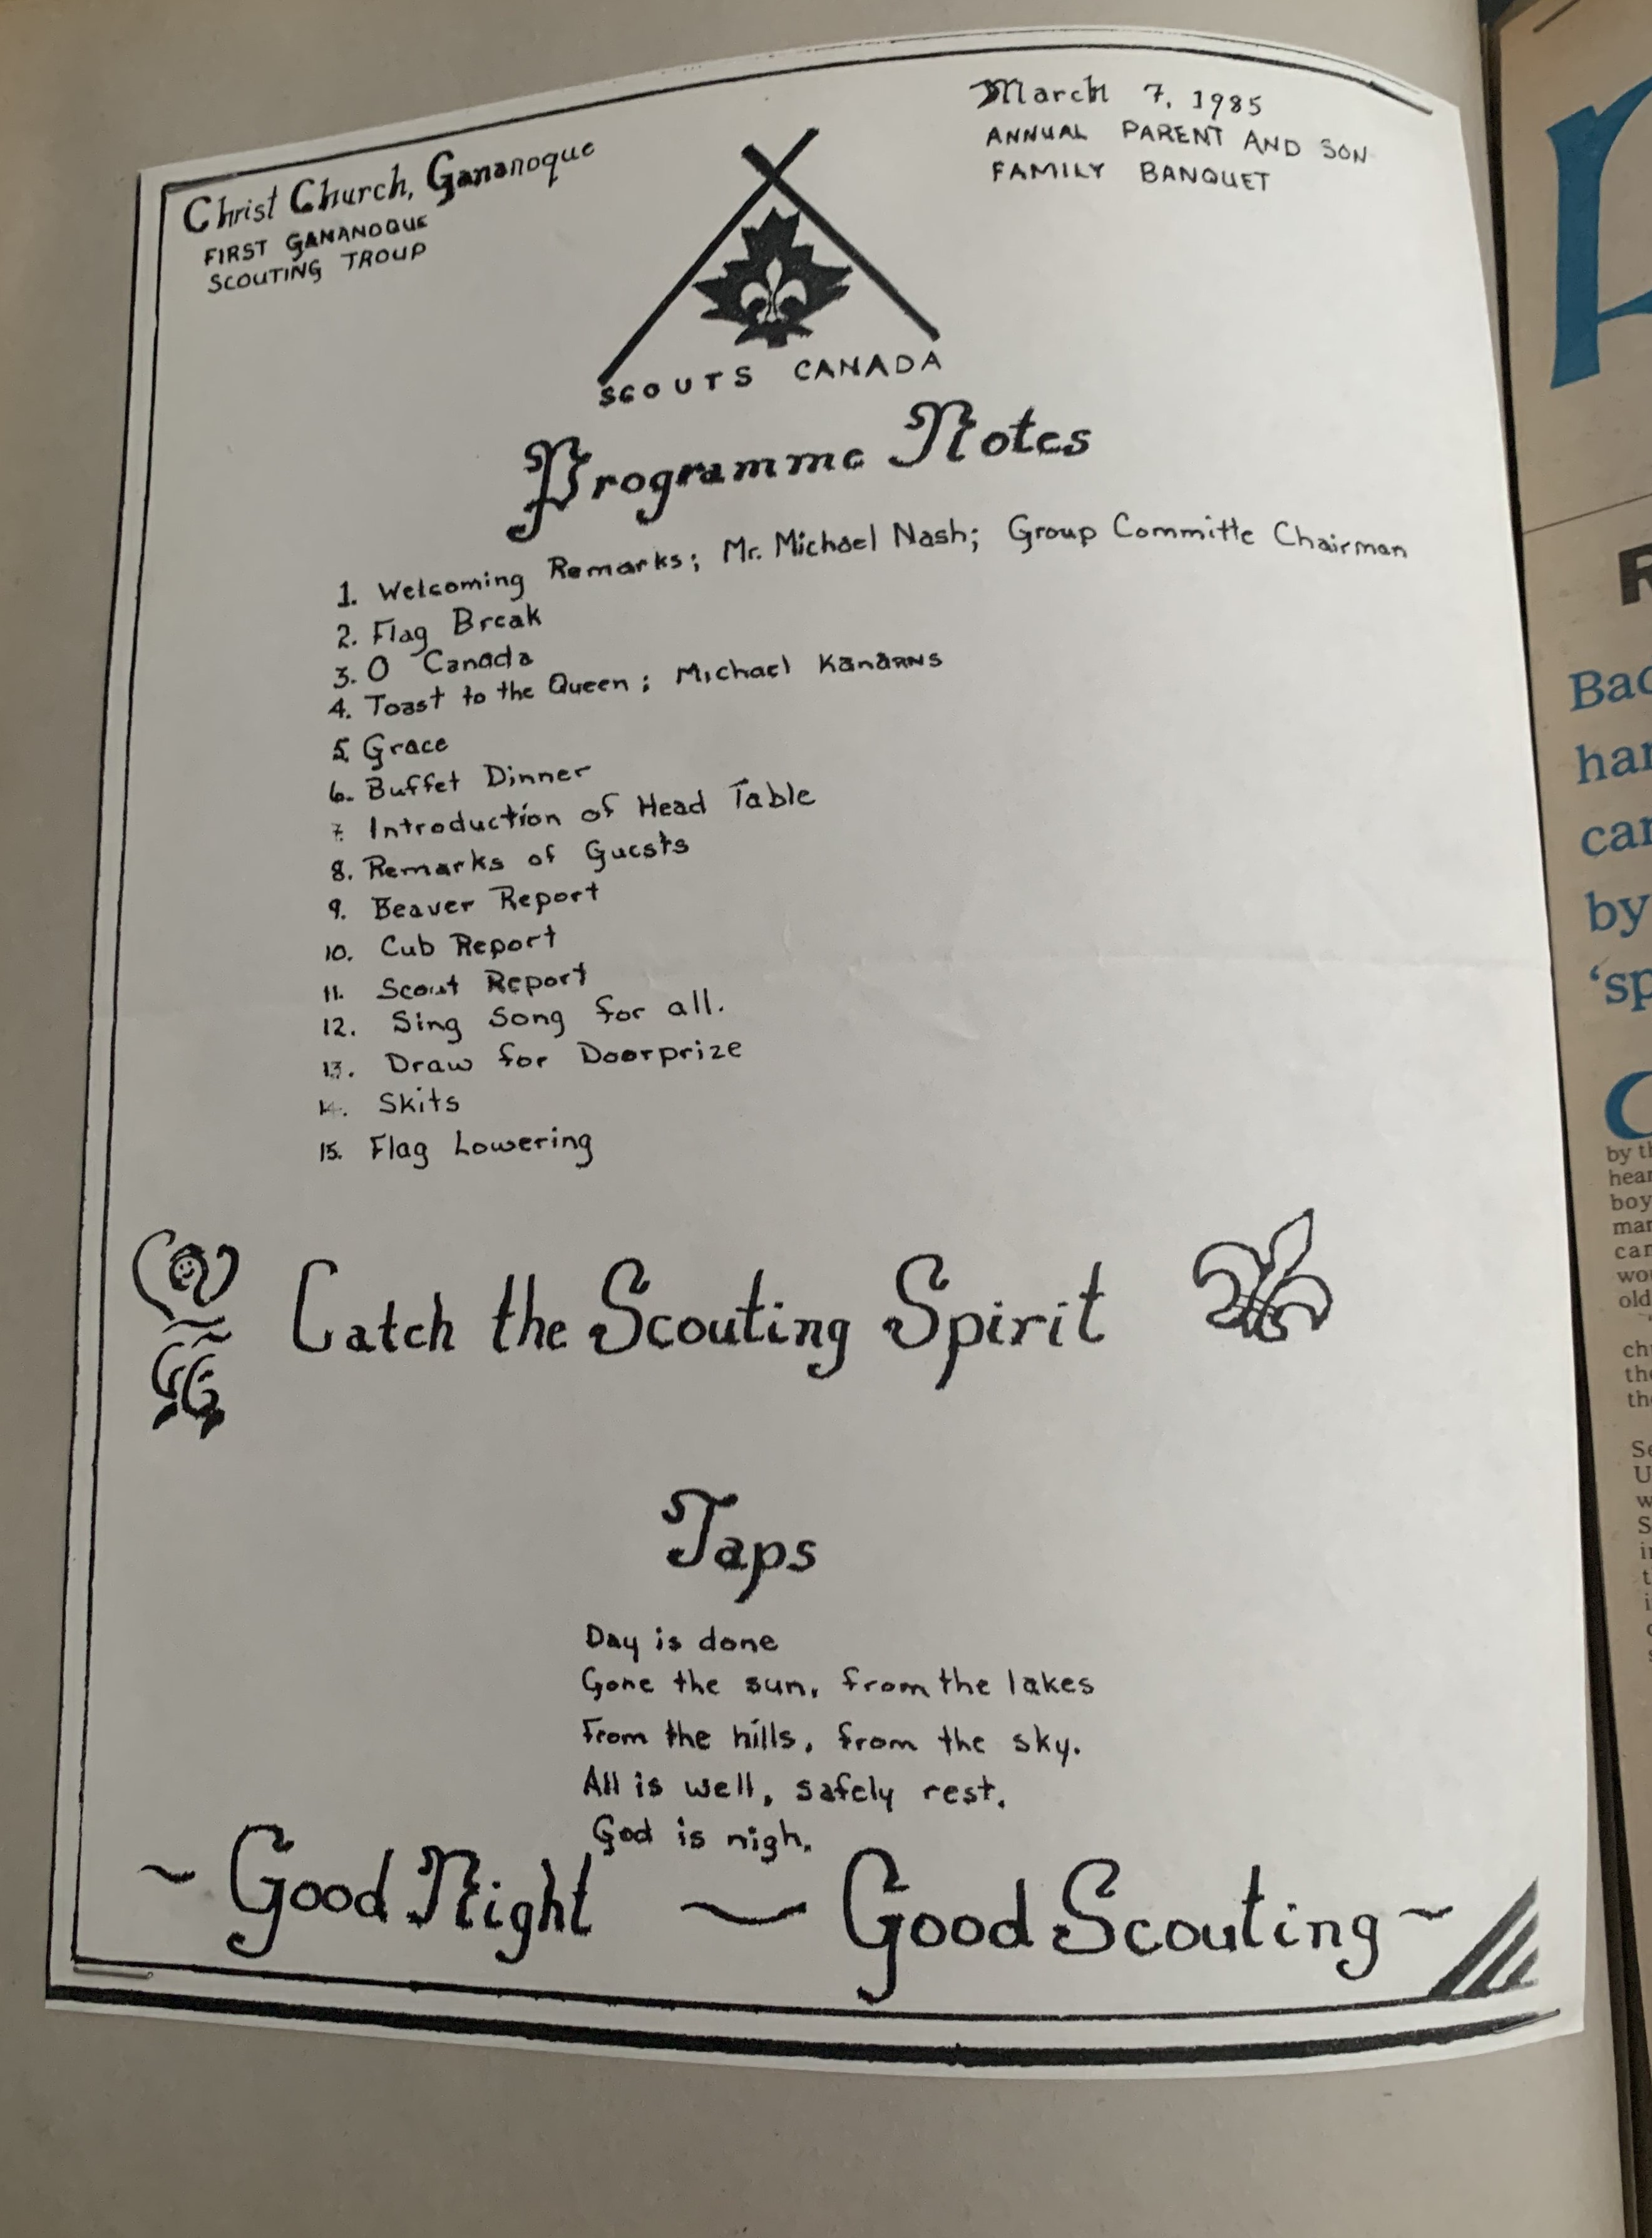 Christ Church, Gananoque
FIRST GANANOQUE
SCOUTING TROUP
March 7, 1985
ANNUAL PARENT AND SON
FAMILY BANQUET
SCOUTS CANADA
Programme Notes
1. Welcoming Remarks; Mr. Michael Nash; Group Committe Chairman
2. Flag Break
3. O Canada
4. Toast to the Queen; Michael Kanarns
5. Grace
6. Buffet Dinner
7. Introduction of Head Table
8. Remarks of Guests
9. Beaver Report
10. Cub Report
11. Scout Report
12. Sing Song for all.
13. Draw for Doorprize
14. Skits
15. Flag Lowering
Catch the Scouting Spirit
Taps
Day is done
Gone the sun, from the lakes
From the hills, from the sky.
All is well, safely rest.
God is nigh.
~ Good Night ~ Good Scouting ~
R
Bac
har
car
by
'sp
C
by th
hear
boy
mar
can
wo
old
ch
the
the
Se
U
w
S
i
t
i